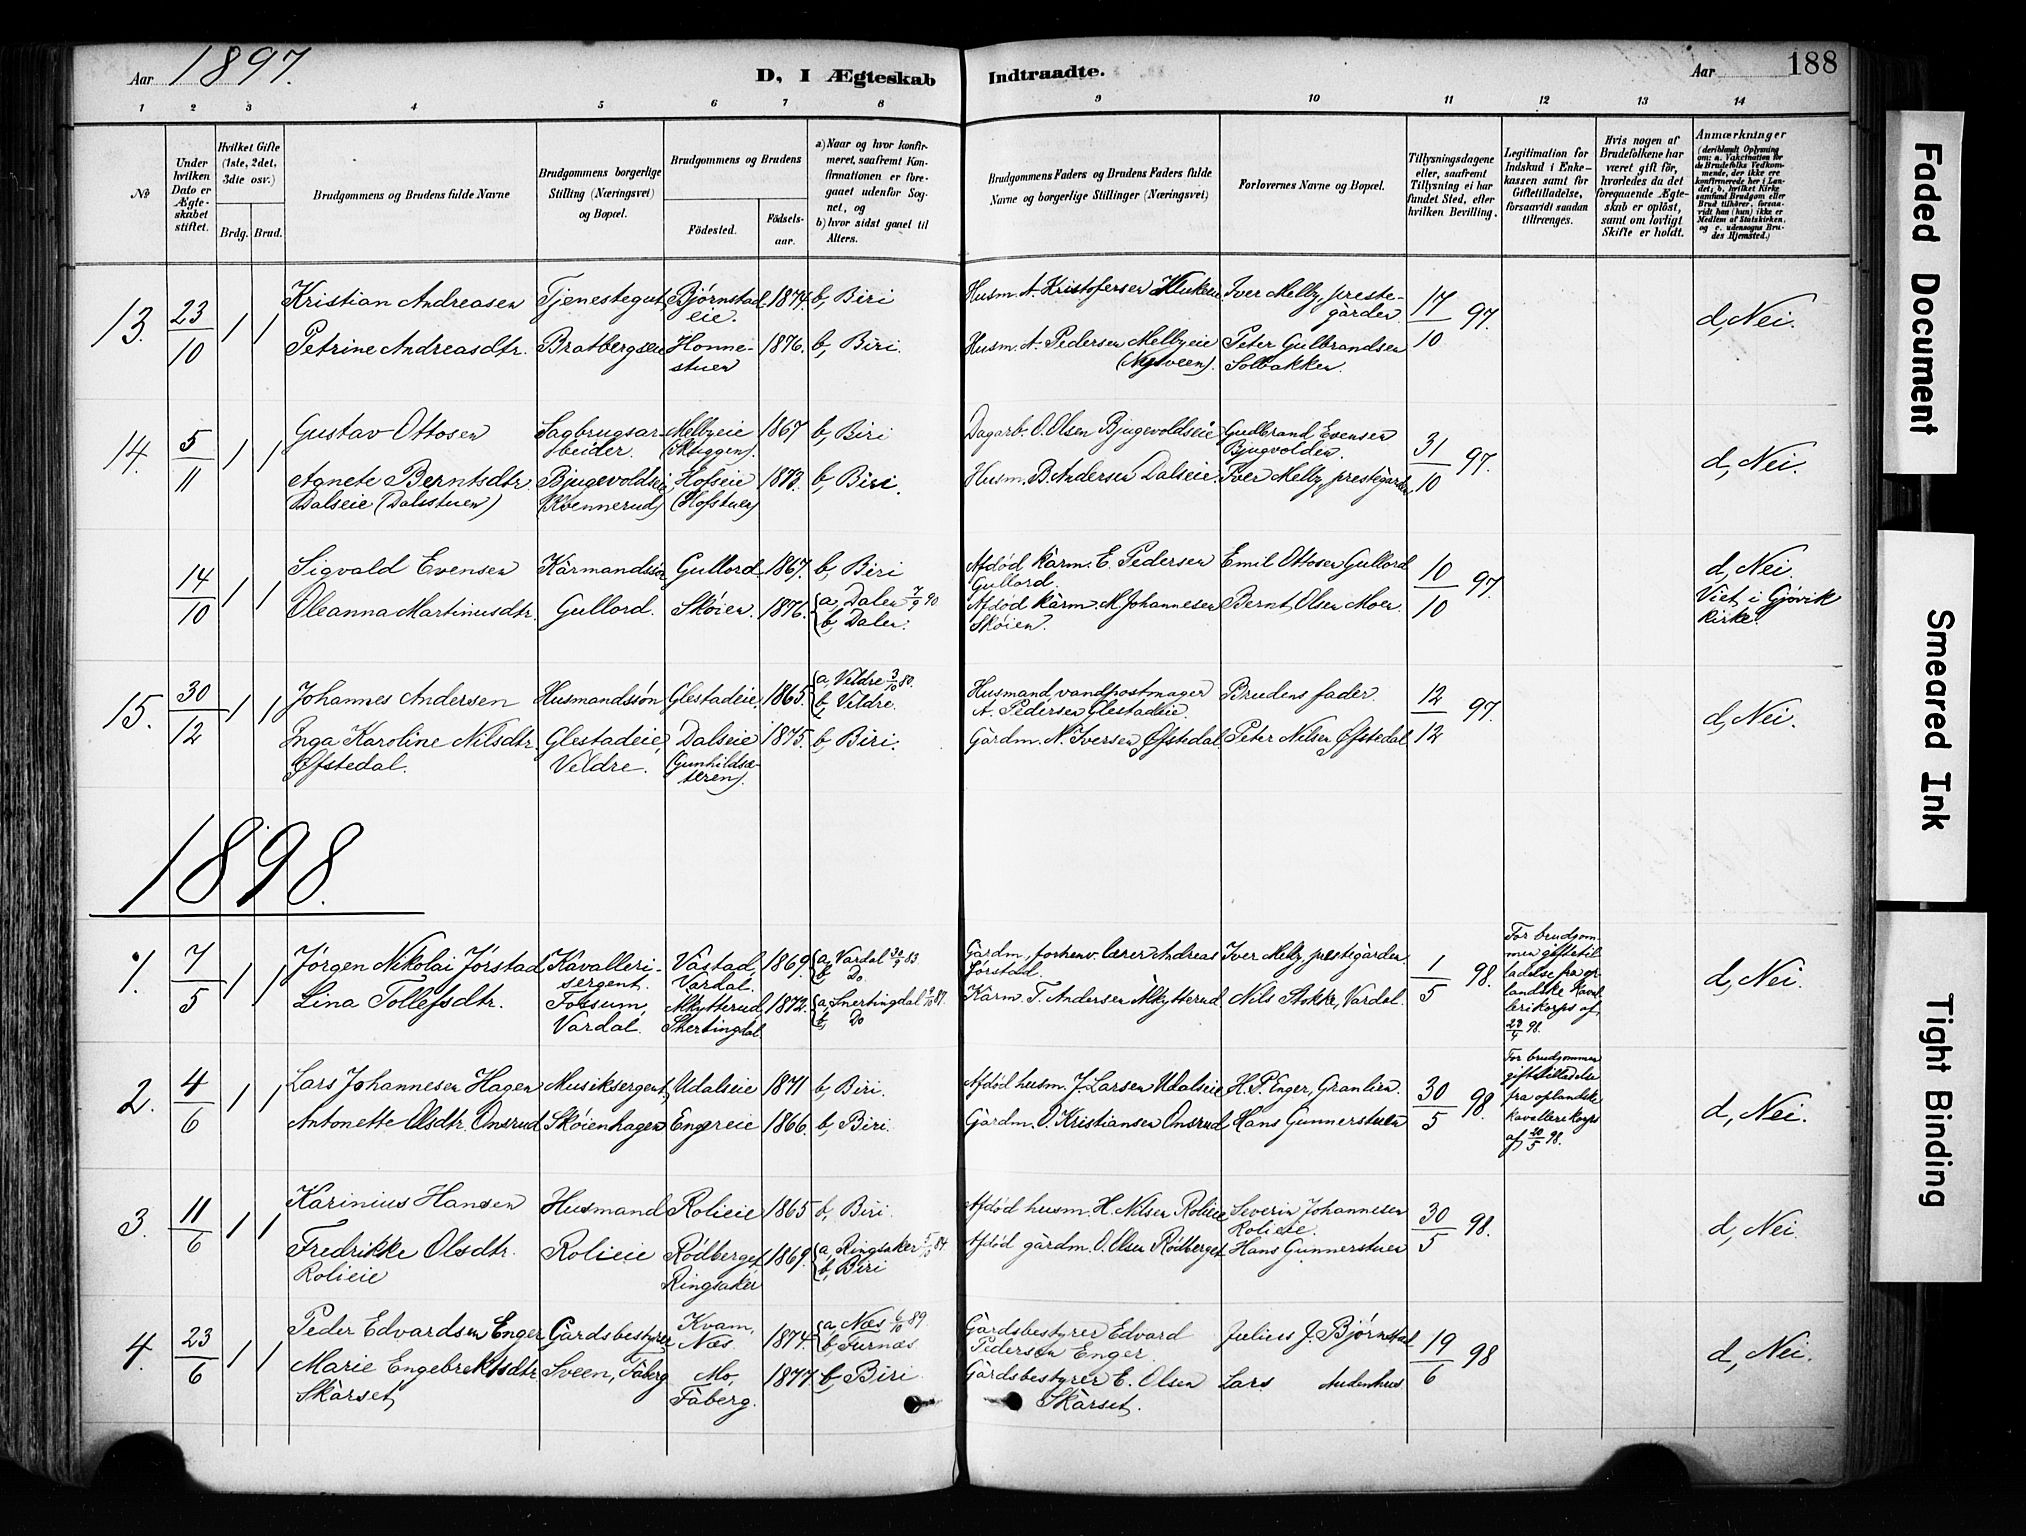 Aar 1897.
D, I Ægteskab Indtraadte.
Aar 188
1 2 3 4 5 6 7 8 9 10 11 12 13 14
No
Under hvilken Dato er Ægteskabet stiftet.
Hvilket Gifte (1ste, 2det, 3die osv.)
Brdg. Brud.
Brudgommens og Brudens fulde Navne
Brudgommens borgerlige Stilling (Næringsvei) og Bopæl.
Brudgommens og Brudens
Fødested. Fødselsaar.
a) Naar og hvor konfirmeret, saafremt Konfirmationen er foregaaet udenfor Sognet, og
b) hvor sidst gaaet til Alters.
Brudgommens Faders og Brudens Faders fulde Navne og borgerlige Stillinger (Næringsvei)
Forlovernes Navne og Bopæl.
Tillysningsdagene eller, saafremt Tillysning ei har fundet Sted, efter hvilken Bevilling.
Legitimation for Indskud i Enkekassen samt for Giftetilladelse, forsaavidt saadan tiltrænges.
Hvis nogen af Brudefolkene har været gift før, hvorledes da det foregaaende Ægteskab er opløst, samt om lovligt Skifte er holdt.
Anmærkninger (deriblandt Oplysning om: a. Vaktination for de Brudefolks Vedkommende, der ikke ere konfirmerede her i Landet; b. hvilket Kirkesamfund Brudgom eller Brud tilhører, forsaavidt han (hun) ikke er Medlem af Statskirken, og c. udensogns Brudes Hjemsted.)
13. 23/10 1 1 Kristian Andreasen Tjenestegut, Bjørnstadeie. 1874. b, Biri Husm. A. Kristofersen Klukeie Iver Melby, prestegården 17/10 97. d, Nei.
Petrine Andreasdtr. Bratbergseie Honnestuen 1876. b, Biri. Husm. A. Pedersen Melbyeie (Nysveen). Peter Gulbrandsen Solbakken.
14. 5/11 1 1 Gustav Ottosen Sagbrugsarbeider. Melbyeie (Skuggen). 1867 b, Biri Dagarb. O. Olsen Bjugevoldseie Gudbrand Evensen Bjugvolden. 31/10 97. d, Nei.
Agnete Berntsdtr. Dalseie (Dalsstuen) Bjugevoldseie (Kvennerud) Hofseie (Hofstuen) 1873. b, Biri. Husm. B. Andersen Dalseie. Iver Melby, prestegården
14/10 1 1 Sigvald Evensen Kårmandssøn Gullord 1867. b, Biri Afdød kårm. E. Pedersen Gullord. Emil Ottosen Gullord 10/10 97. d, Nei
Oleanna Martinusdtr. Gullord. Skøien. 1876. a, Dalen 7/9 90 b, Dalen. Afdød kårm. M. Johannesen Skøien. Bernt Olsen Moen Viet i Gjøvik kirke.
15. 30/12 1 1 Johannes Andersen Husmandssøn Glestadeie. 1865. a, Veldre 3/10 80. b, Veldre. Husmand, vandpostmager A. Pedersen Glestadeie. Brudens fader. 12/12 97. d, Nei.
Inga Karoline Nilsdtr. Øfstedal. Glestadeie Veldre. Dalseie (Gunhildsæteren). 1875. b, Biri. Gårdm. N. Iversen Øfstedal Peter Nilsen Øfstedal
1898.
1. 7/5 1 1 Jørgen Nikolai Jørstad Kavallerisergent. Våstad, Vardal. 1869. a, Vardal 83 b, Do Gårdm., forhenv. lærer Andreas Jørstad. Iver Melby, prestegården 1/5 98. For brudgommen giftetilladelse fra oplandske kavallerikorps af 29/4 98. d, Nei.
Lina Tollefsdtr. Fossum, Vardal. Alkytterud Snertingdal. 1872. a, Snertingdal 87. b, Do Kårm. T. Andersen Alkytterud Nils Stokke, Vardal.
2. 4/6 1 1 Lars Johannesen Hagen Musiksergent, Udalseie 1871 b, Biri. Afdød husm. J. Larsen Udalseie H. P. Enger, Granlien. 30/5 98. For brudgommen giftetilladelse fra oplandske kavallerikorps af 20/5 98. d, Nei.
Antonette Olsdtr. Onsrud Skøienhagen Engereie 1866. b, Biri. Gårdm. O. Kristiansen Onsrud, Hans Gunnerstuen
3. 11/6 1 1 Karinius Hansen Husmand Rolieie 1865 b, Biri. Afdød husm. H. Nilsen Rolieie Severin Johannesen Rolieie. 30/5 98. d, Nei.
Fredrikke Olsdtr. Rolieie Rolieie Rødberget Ringsaker 1869. a, Ringsaker 84 b, Biri Afdød gårdm. O. Olsen Rødberget Hans Gunnerstuen
4. 23/6 1 1 Peder Edvardsen Enger Gårdsbestyrer Kvam, Næs. 1874. a, Næs 6/10 89. b, Furnæs Gårdsbestyrer Edvard Pedersen Enger. Julius J. Bjørnstad 19/6 98 d, Nei.
Marie Engebrektsdtr. Skårset, Sveen, Fåberg Mo, Fåberg. 1877 b, Biri Gårdsbestyrer E. Olsen Skårset. Lars Audenhus
Faded Document
Smeared Ink
Tight Binding